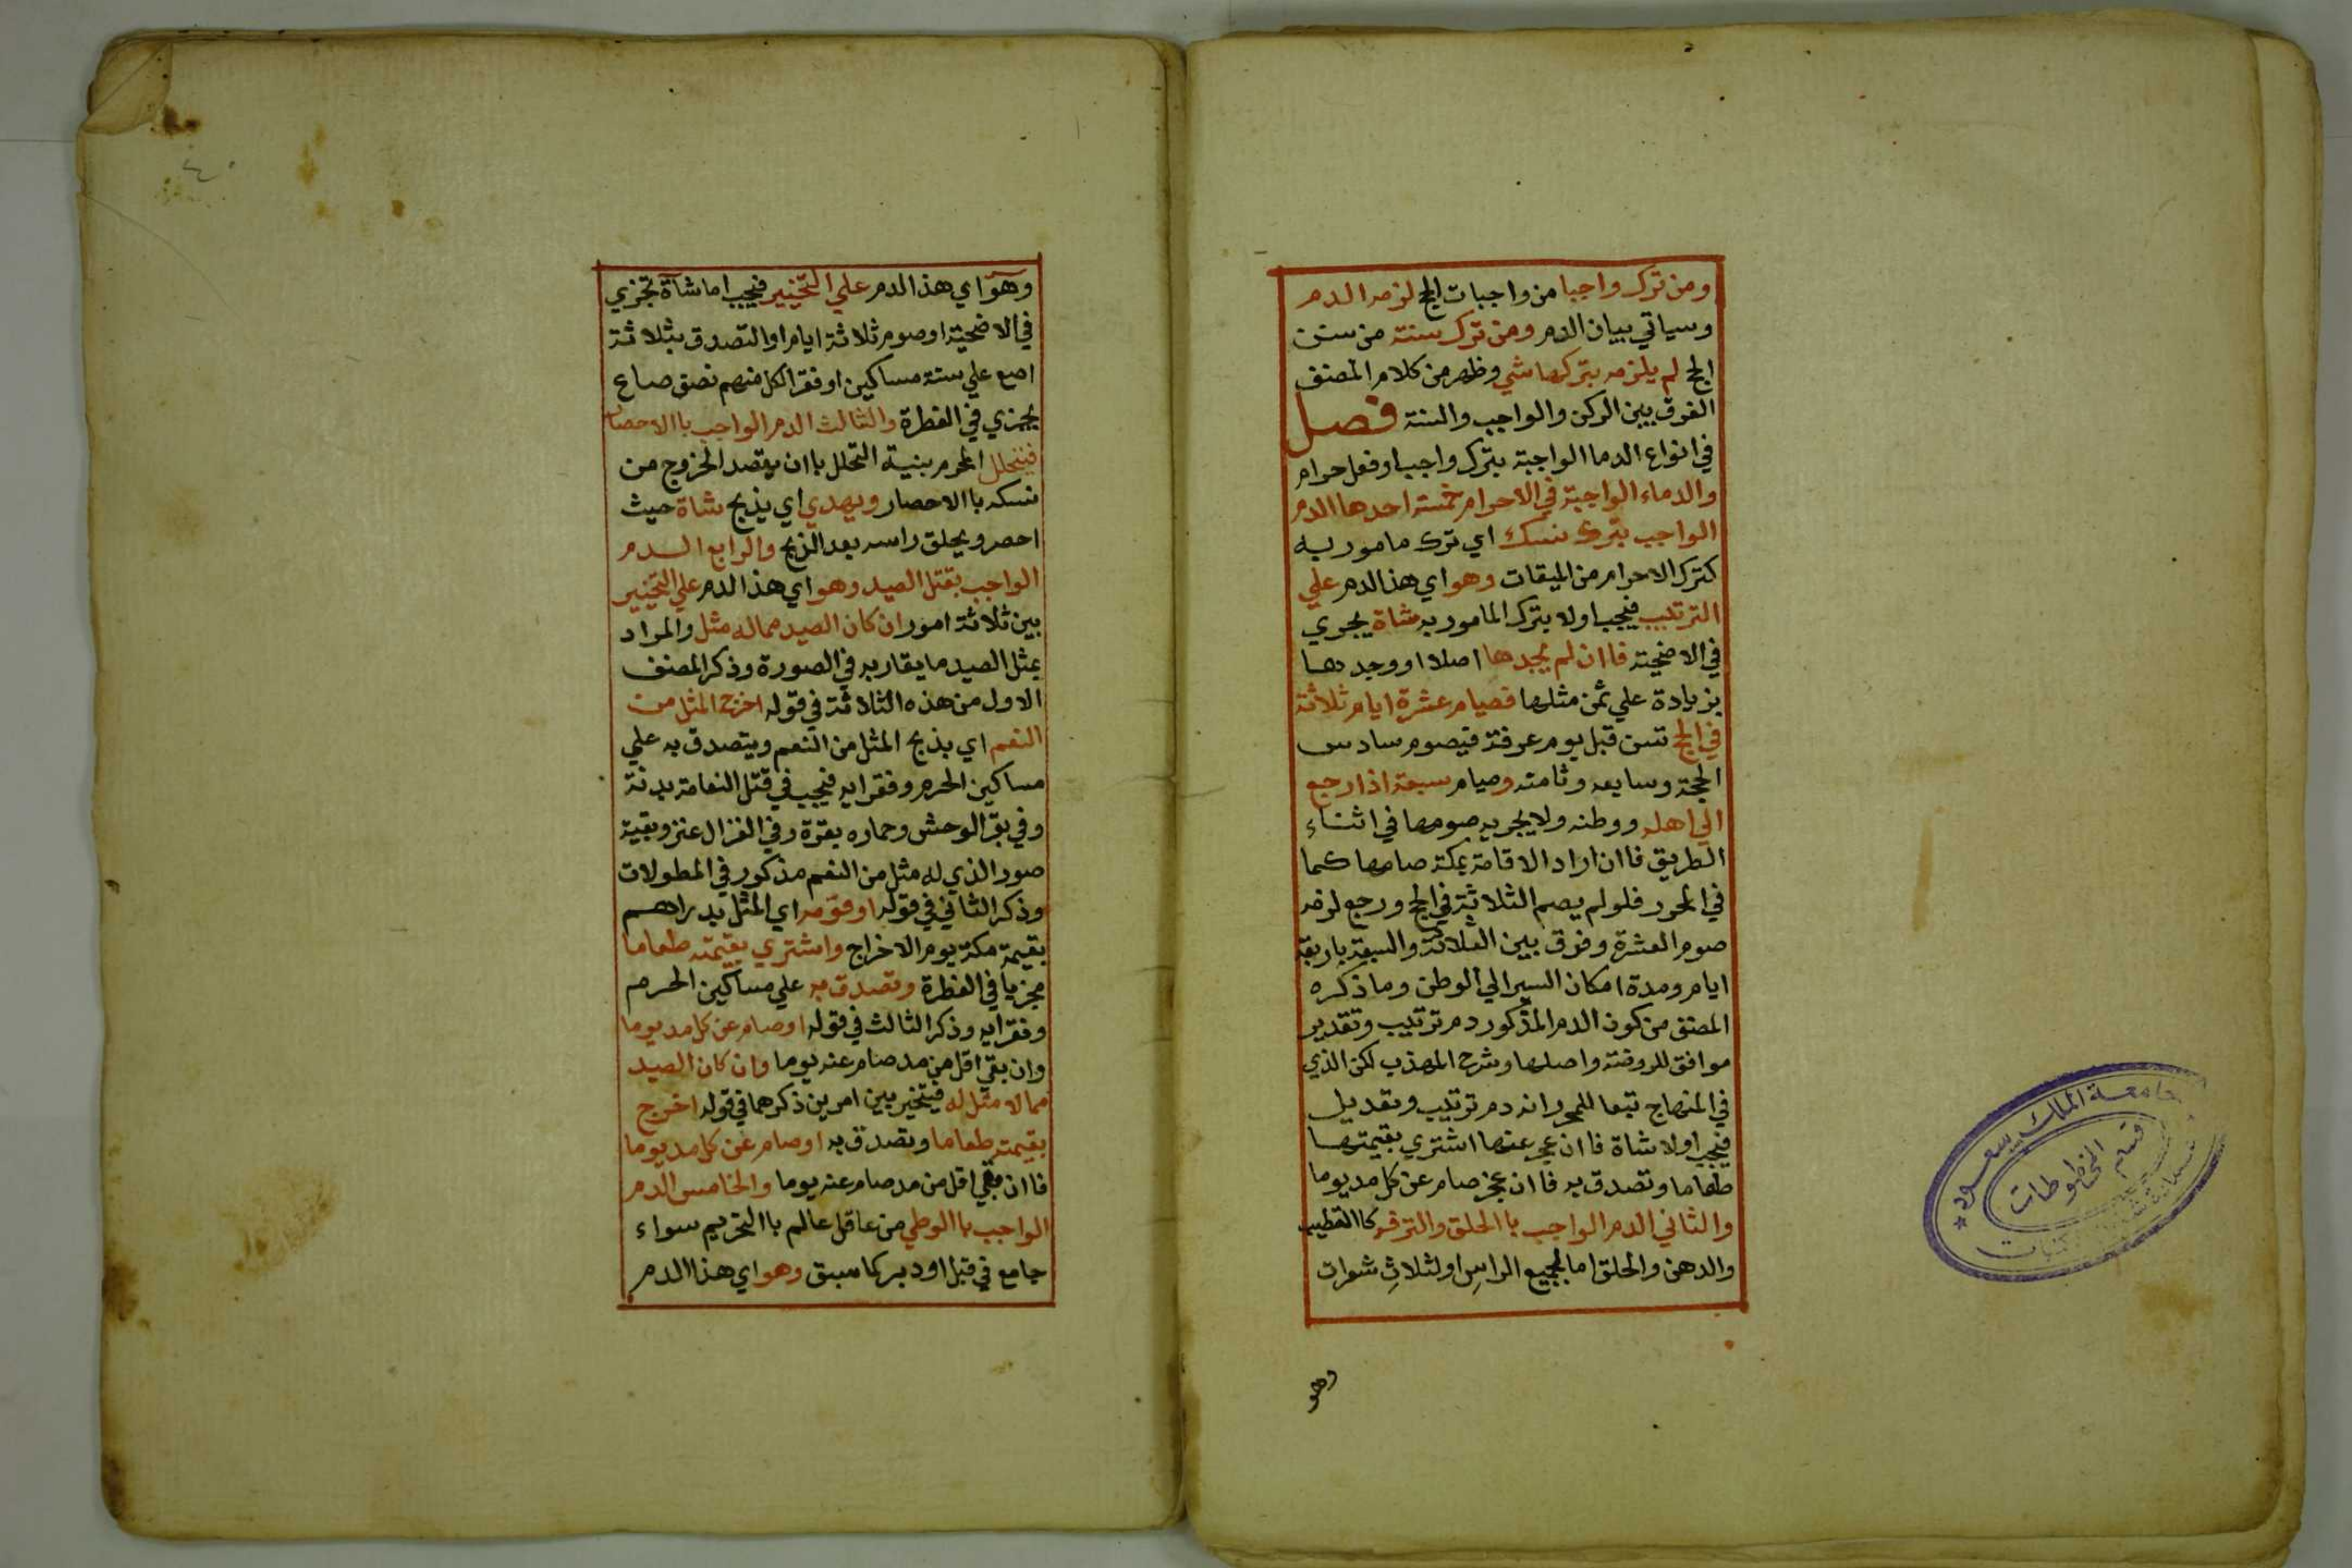 ومن ترك واجبا من واجبات الحج لزمه الدم
وسياتي بيان الدم ومن ترك سنة من سنن
الحج لم يلزمه بتركها شي وظهر من كلام المصنف
الفرق بين الركن والواجب والسنة فصل
في انواع الدما الواجبة بترك واجب او فعل حرام
والدماء الواجبة في الاحرام خمسة احدها الدم
الواجب بترك نسك اي ترك مامور به
كترك الاحرام من الميقات وهو اي هذا الدم علي
الترتيب فيجب اولا بترك المامور به شاة يجزي
في الاضحية فاان لم يجدها اصلا او وجدها
بزيادة علي ثمن مثلها فصيام عشرة ايام ثلاثة
في الحج تسن قبل يوم عرفة فيصوم سادس
الحجة وسابعه وثامنه وصيام سبعة اذا رجع
الي اهله ووطنه ولا يجزيه صومها في اثناء
الطريق فاان اراد الاقامة بمكة صامها كما
في المحرر فلو لم يصم الثلاثة في الحج ورجع لزمه
صوم العشرة وفرق بين الثلاثة والسبعة باربعة
ايام ومدة امكان السير الي الوطن وما ذكره
المصنف من كون الدم المذكور دم ترتيب وتقدير
موافق للروضة واصلها وشرح المهذب لكن الذي
في المنهاج تبعا للمحرر انه دم ترتيب وتعديل
فيجب اولا شاة فاان عجز عنها اشتري بقيمتها
طعاما وتصدق به فاان عجز صام عن كل مد يوما
والثاني الدم الواجب باالحلق والترفه كاالتطيب
والدهن والحلق اما لجميع الراس او لثلاث شعرات
وهو
جامعة الملك سعود
قسم المخطوطات
٤٠
وهو اي هذا الدم علي التخيير فيجب اما شاة تجزي
في الاضحية او صوم ثلاثة ايام او التصدق بثلاثة
اصع علي ستة مساكين او فقرا لكل منهم نصف صاع
يجزي في الفطرة والثالث الدم الواجب باالاحصار
فيتحلل المحرم بنية التحلل باان يقصد الخروج من
نسكه باالاحصار ويهدي اي يذبح شاة حيث
احصر ويحلق راسه بعد الذبح والرابع الدم
الواجب بقتل الصيد وهو اي هذا الدم علي التخيير
بين ثلاثة امور ان كان الصيد مما له مثل والمراد
بمثل الصيد ما يقاربه في الصورة وذكر المصنف
الاول من هذه الثلاثة في قوله اخرج المثل من
النعم اي يذبح المثل من النعم ويتصدق به علي
مساكين الحرم وفقرايه فيجب في قتل النعامة بدنة
وفي بقر الوحش وحماره بقرة وفي الغزال عنز وبقية
صور الذي له مثل من النعم مذكور في المطولات
وذكر الثاني في قوله او قومه اي المثل بدراهم
بقيمة مكة يوم الاخراج واشتري بقيمته طعاما
مجزيا في الفطرة وتصدق به علي مساكين الحرم
وفقرايه وذكر الثالث في قوله او صام عن كل مد يوما
وان بقي اقل من مد صام عنه يوما وان كان الصيد
مما لا مثل له فيتخير بين امرين ذكرهما في قوله اخرج
بقيمته طعاما وتصدق به او صام عن كل مد يوما
فاان بقي اقل من مد صام عنه يوما والخامس الدم
الواجب باالوطي من عاقل عالم باالتحريم سواء
جامع في قبل او دبر كما سبق وهو اي هذا الدم